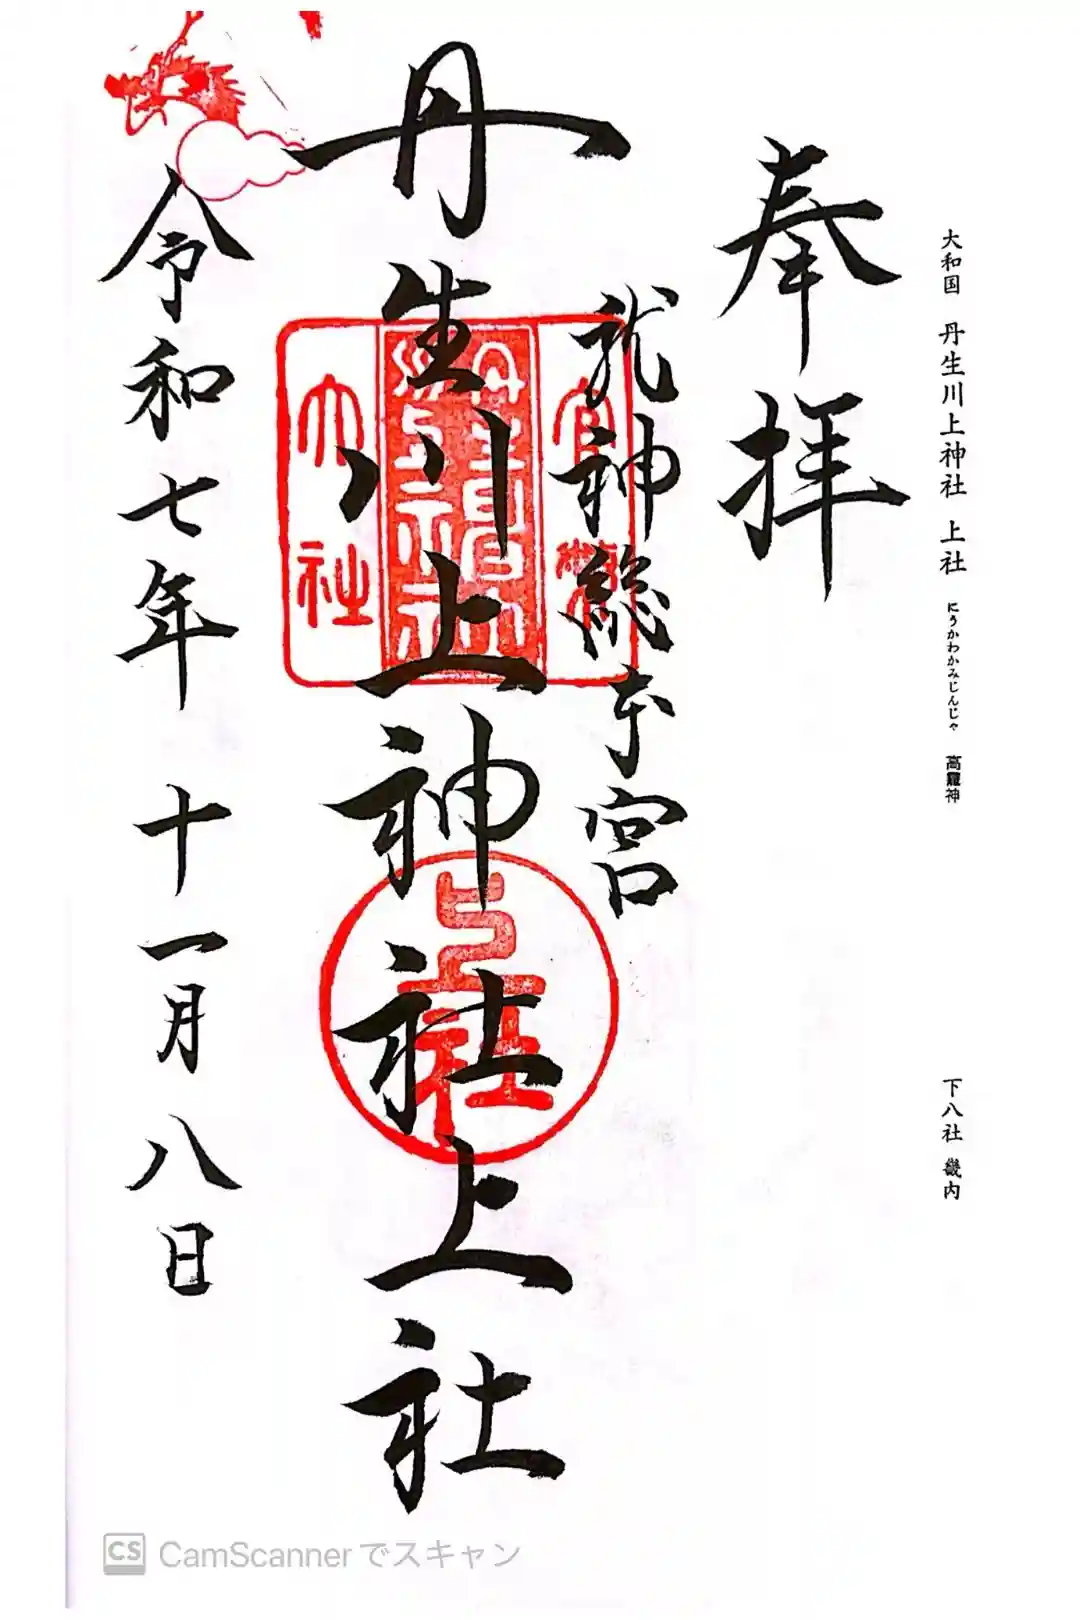 大和国 丹生川上神社 上社 にうかわかみじんじゃ 高龗神
下八社 畿内
奉拝
龍神総本宮
丹生川上神社上社
令和七年十一月八日
官幣
大社
上社
CS CamScannerでスキャン